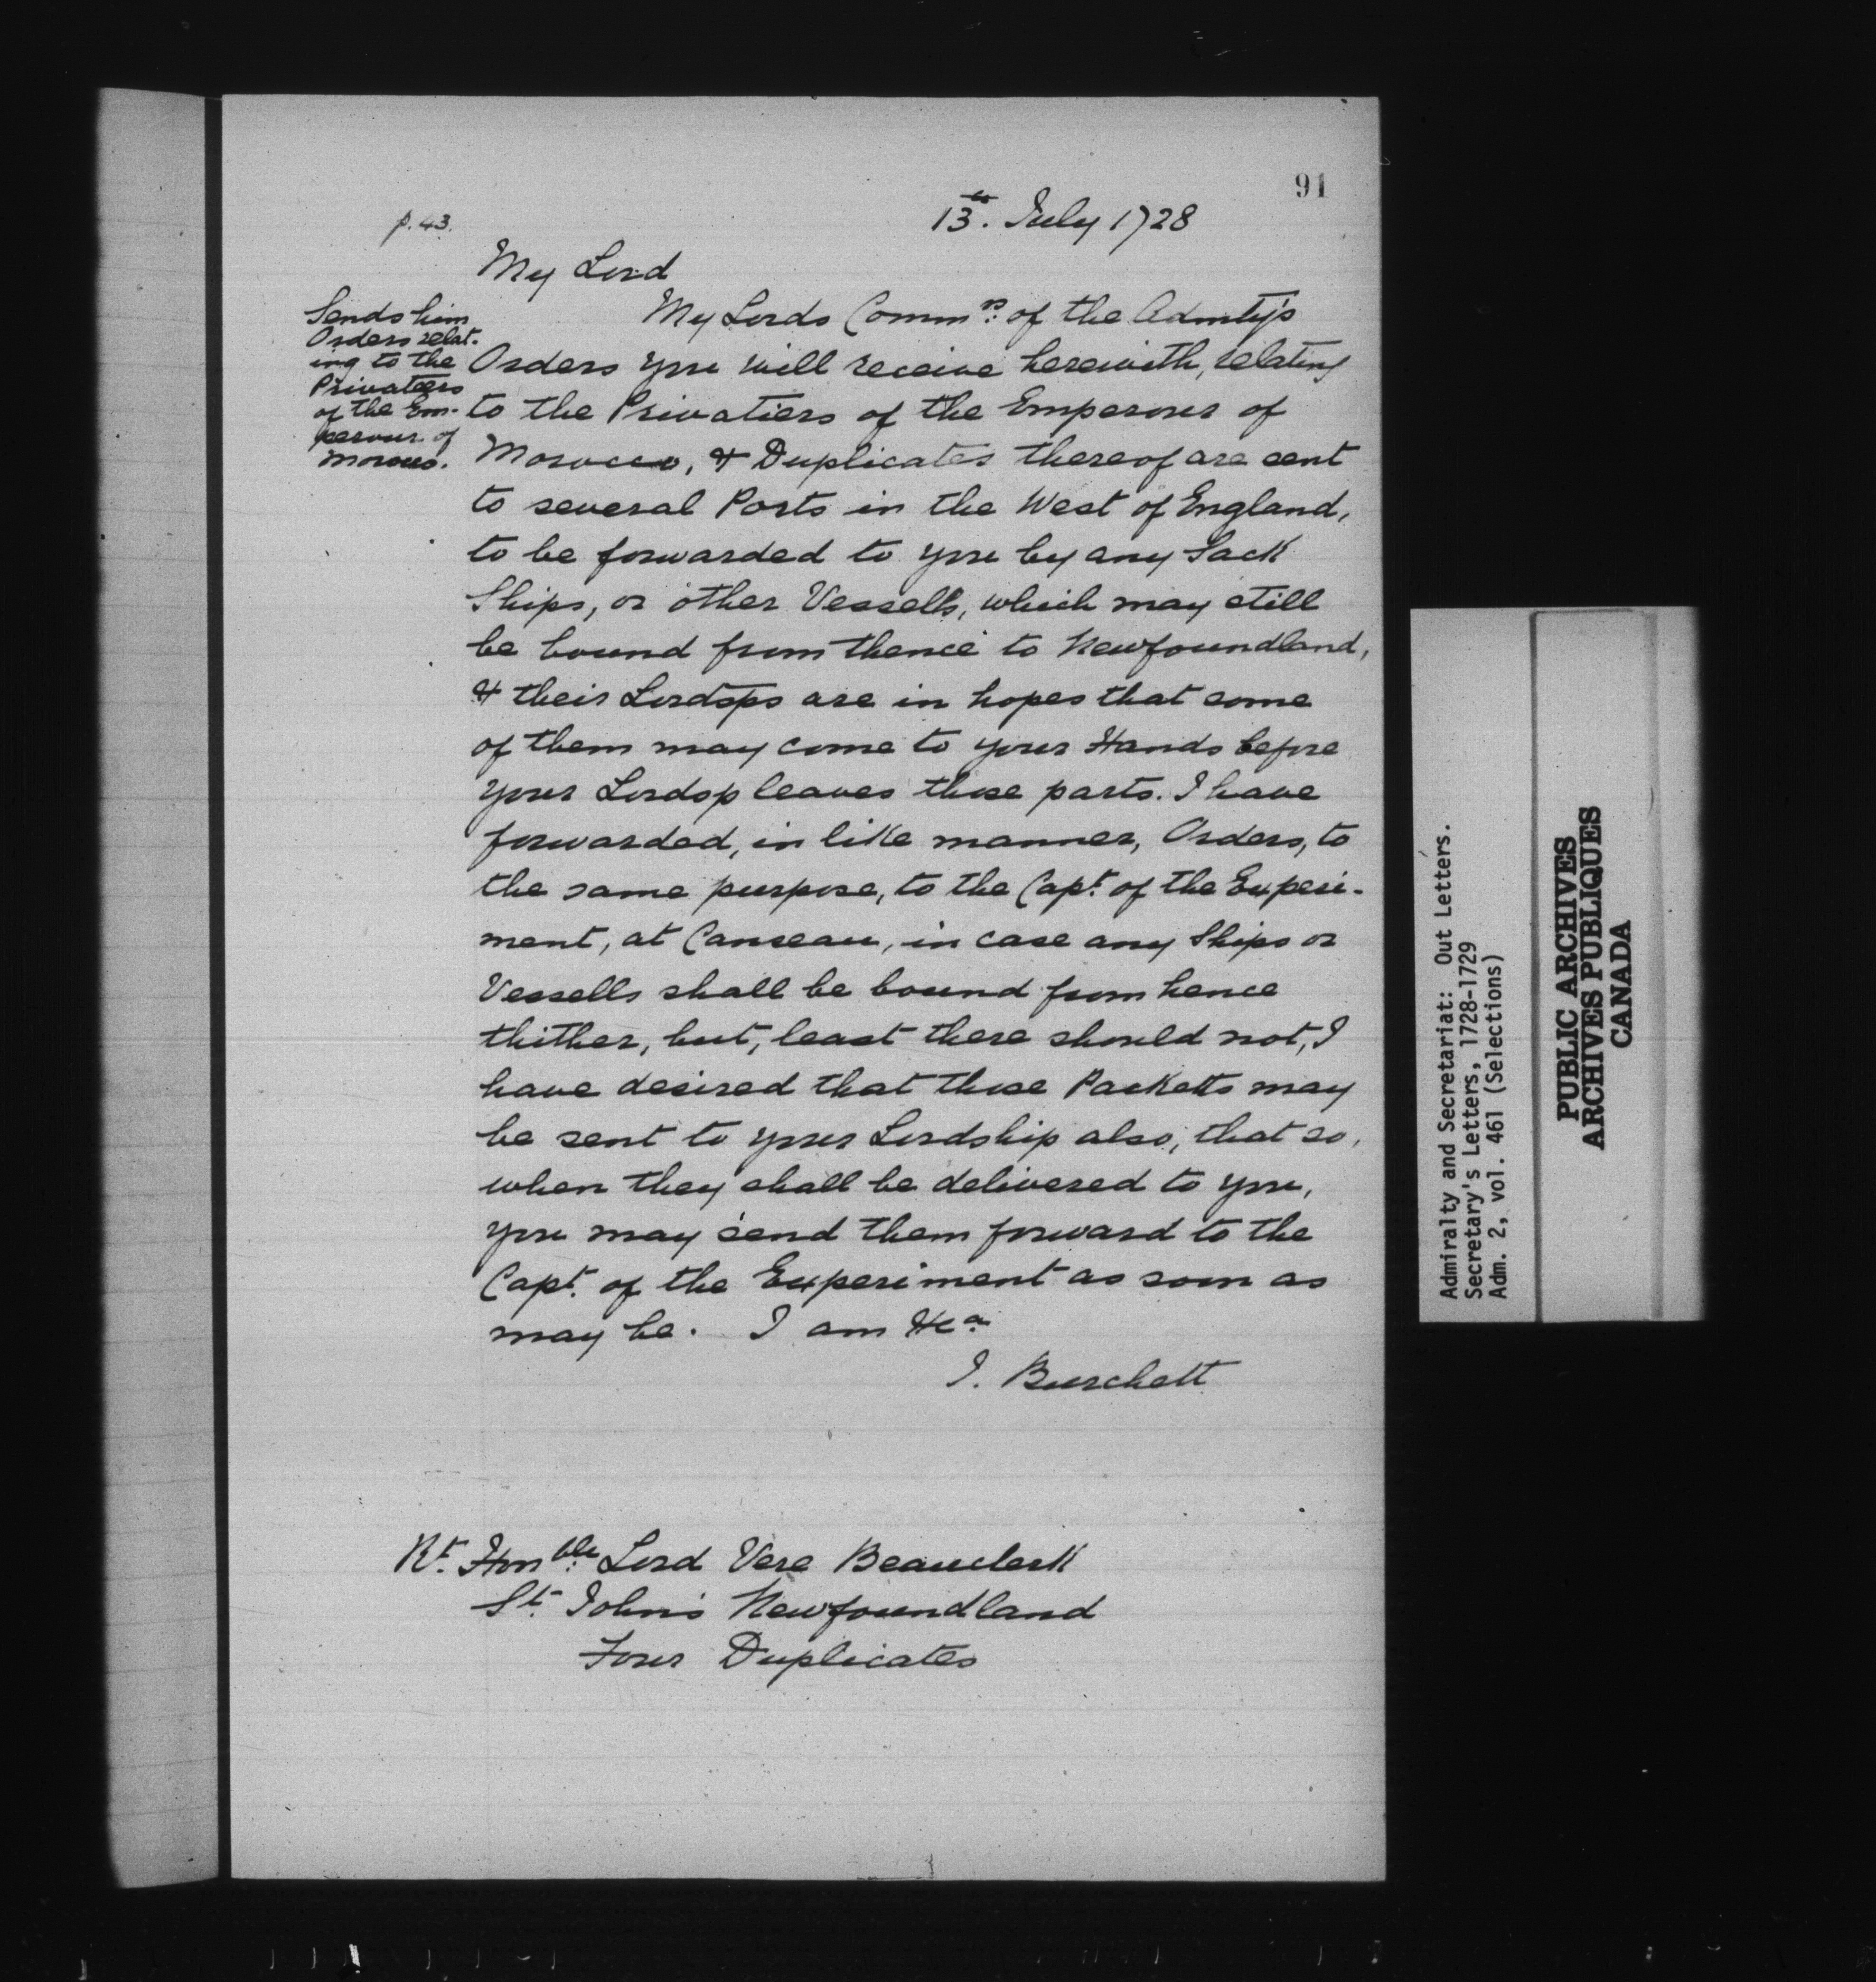 91
p. 43.
13th. July 1728
My Lord
Sends him
Orders relat-
ing to the
Privateers
of the Em-
perour of
Morocco.
My Lords Commrs: of the Admty's
Orders you will receive herewith, relating
to the Privatiers of the Emperour of
Morocco, & Duplicates thereof are sent
to several Ports in the West of England,
to be forwarded to you by any Sack
Ships, or other Vessells, which may still
be bound from thence to Newfoundland,
& their Lordsps are in hopes that some
of them may come to your Hands before
your Lordsp leaves those parts. I have
forwarded, in like manner, Orders, to
the same purpose, to the Capt. of the Experi-
ment, at Canseau, in case any Ships or
Vessells shall be bound from hence
thither, but, least there should not, I
have desired that those Packetts may
be sent to your Lordship also, that so,
when they shall be delivered to you,
you may send them forward to the
Capt. of the Experiment as soon as
may be. I am &ca
J. Burchett
Rt. Honble: Lord Vere Beauclerk
St. John's Newfoundland
Four Duplicates
Admiralty and Secretariat: Out Letters.
Secretary's Letters, 1728-1729
Adm. 2, vol. 461 (Selections)
PUBLIC ARCHIVES
ARCHIVES PUBLIQUES
CANADA